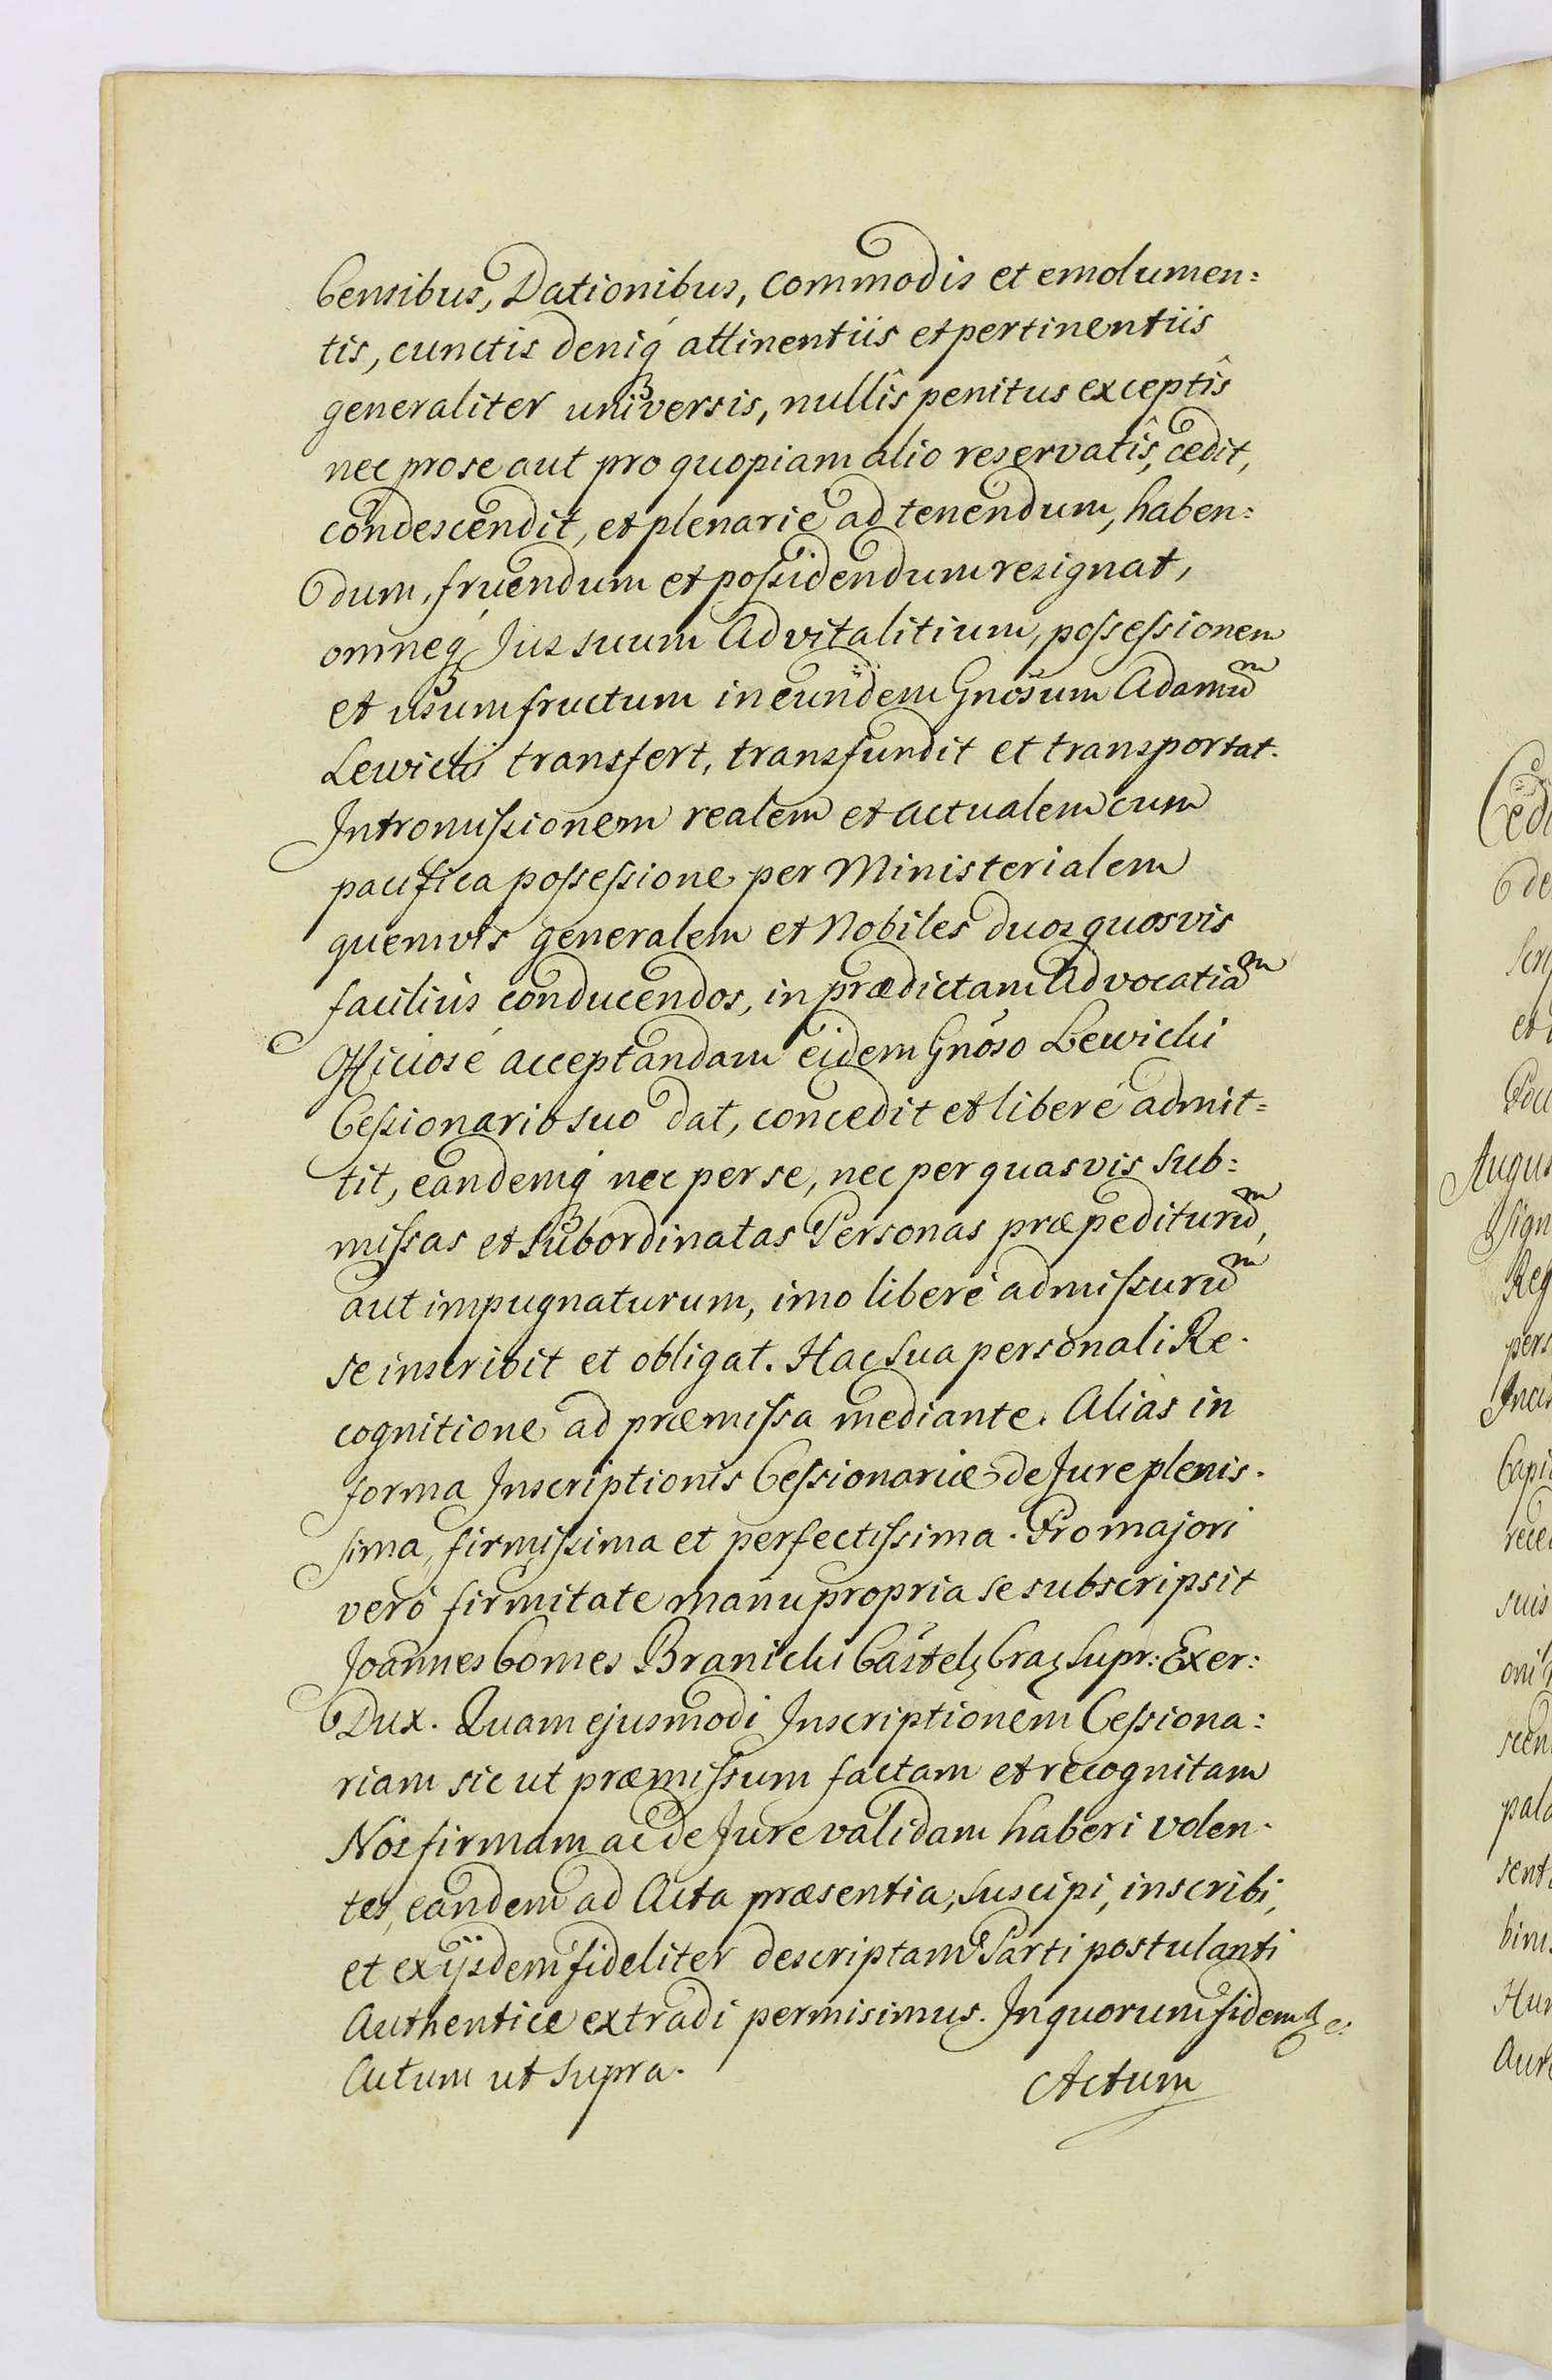 Censibus, Dationibus, commodis et emolumen:
tis, cunctis deniq́ attinentiis et pertinentiis
generaliter universis, nullîs penitus exceptîs
nec pro se aut pro quopiam alio reservatîs, cedit,
condescendit, et plenarie ad tenendum, haben:
dum, fruendum et possidendum resignat,
omneq́ Jus suum Advitalitium, possessionem
et usumfructum in eundem Gnosum Adamũm
Lewicki transfert, transfundit et transportat.
Intromissionem realem et actualem cum
pacifica possessione per Ministerialem
quemvis generalem et Nobiles duos quosvis
facilius conducendos, in prædictam Advocatiãm
Officiosé acceptandam eidem Gnoso Lewicki
Cessionario suo dat, concedit et liberé admit=
tit, eandemq́ nec per se, nec per quasvis sub:
missas et subordinatas Personas præpediturũm,
aut impugnaturum, imo liberé admissurũm
se inscribit et obligat. Hac sua personali Re.
cognitione ad præmissa mediante. Alias in
forma Inscriptionis Cessionariæ de Jure plenis.
sima, firmissima et perfectissima. Pro majori
veró firmitate manu propria se subscripsit
Joannes Comes Branicki Castelz Craz Supr: Exer:
Dux. Quam ejusmodi Inscriptionem Cessiona:
riam sic ut præmissum factam et recognitam
Nos firmam ac de Jure validam haberi volen.
tes, eandem ad Acta præsentia, suscipi, inscribi,
et ex ijsdem fideliter descriptam Parti postulanti
Authentice extradi permisimus. In quorum fidem &c:
Actum ut supra.
Actum